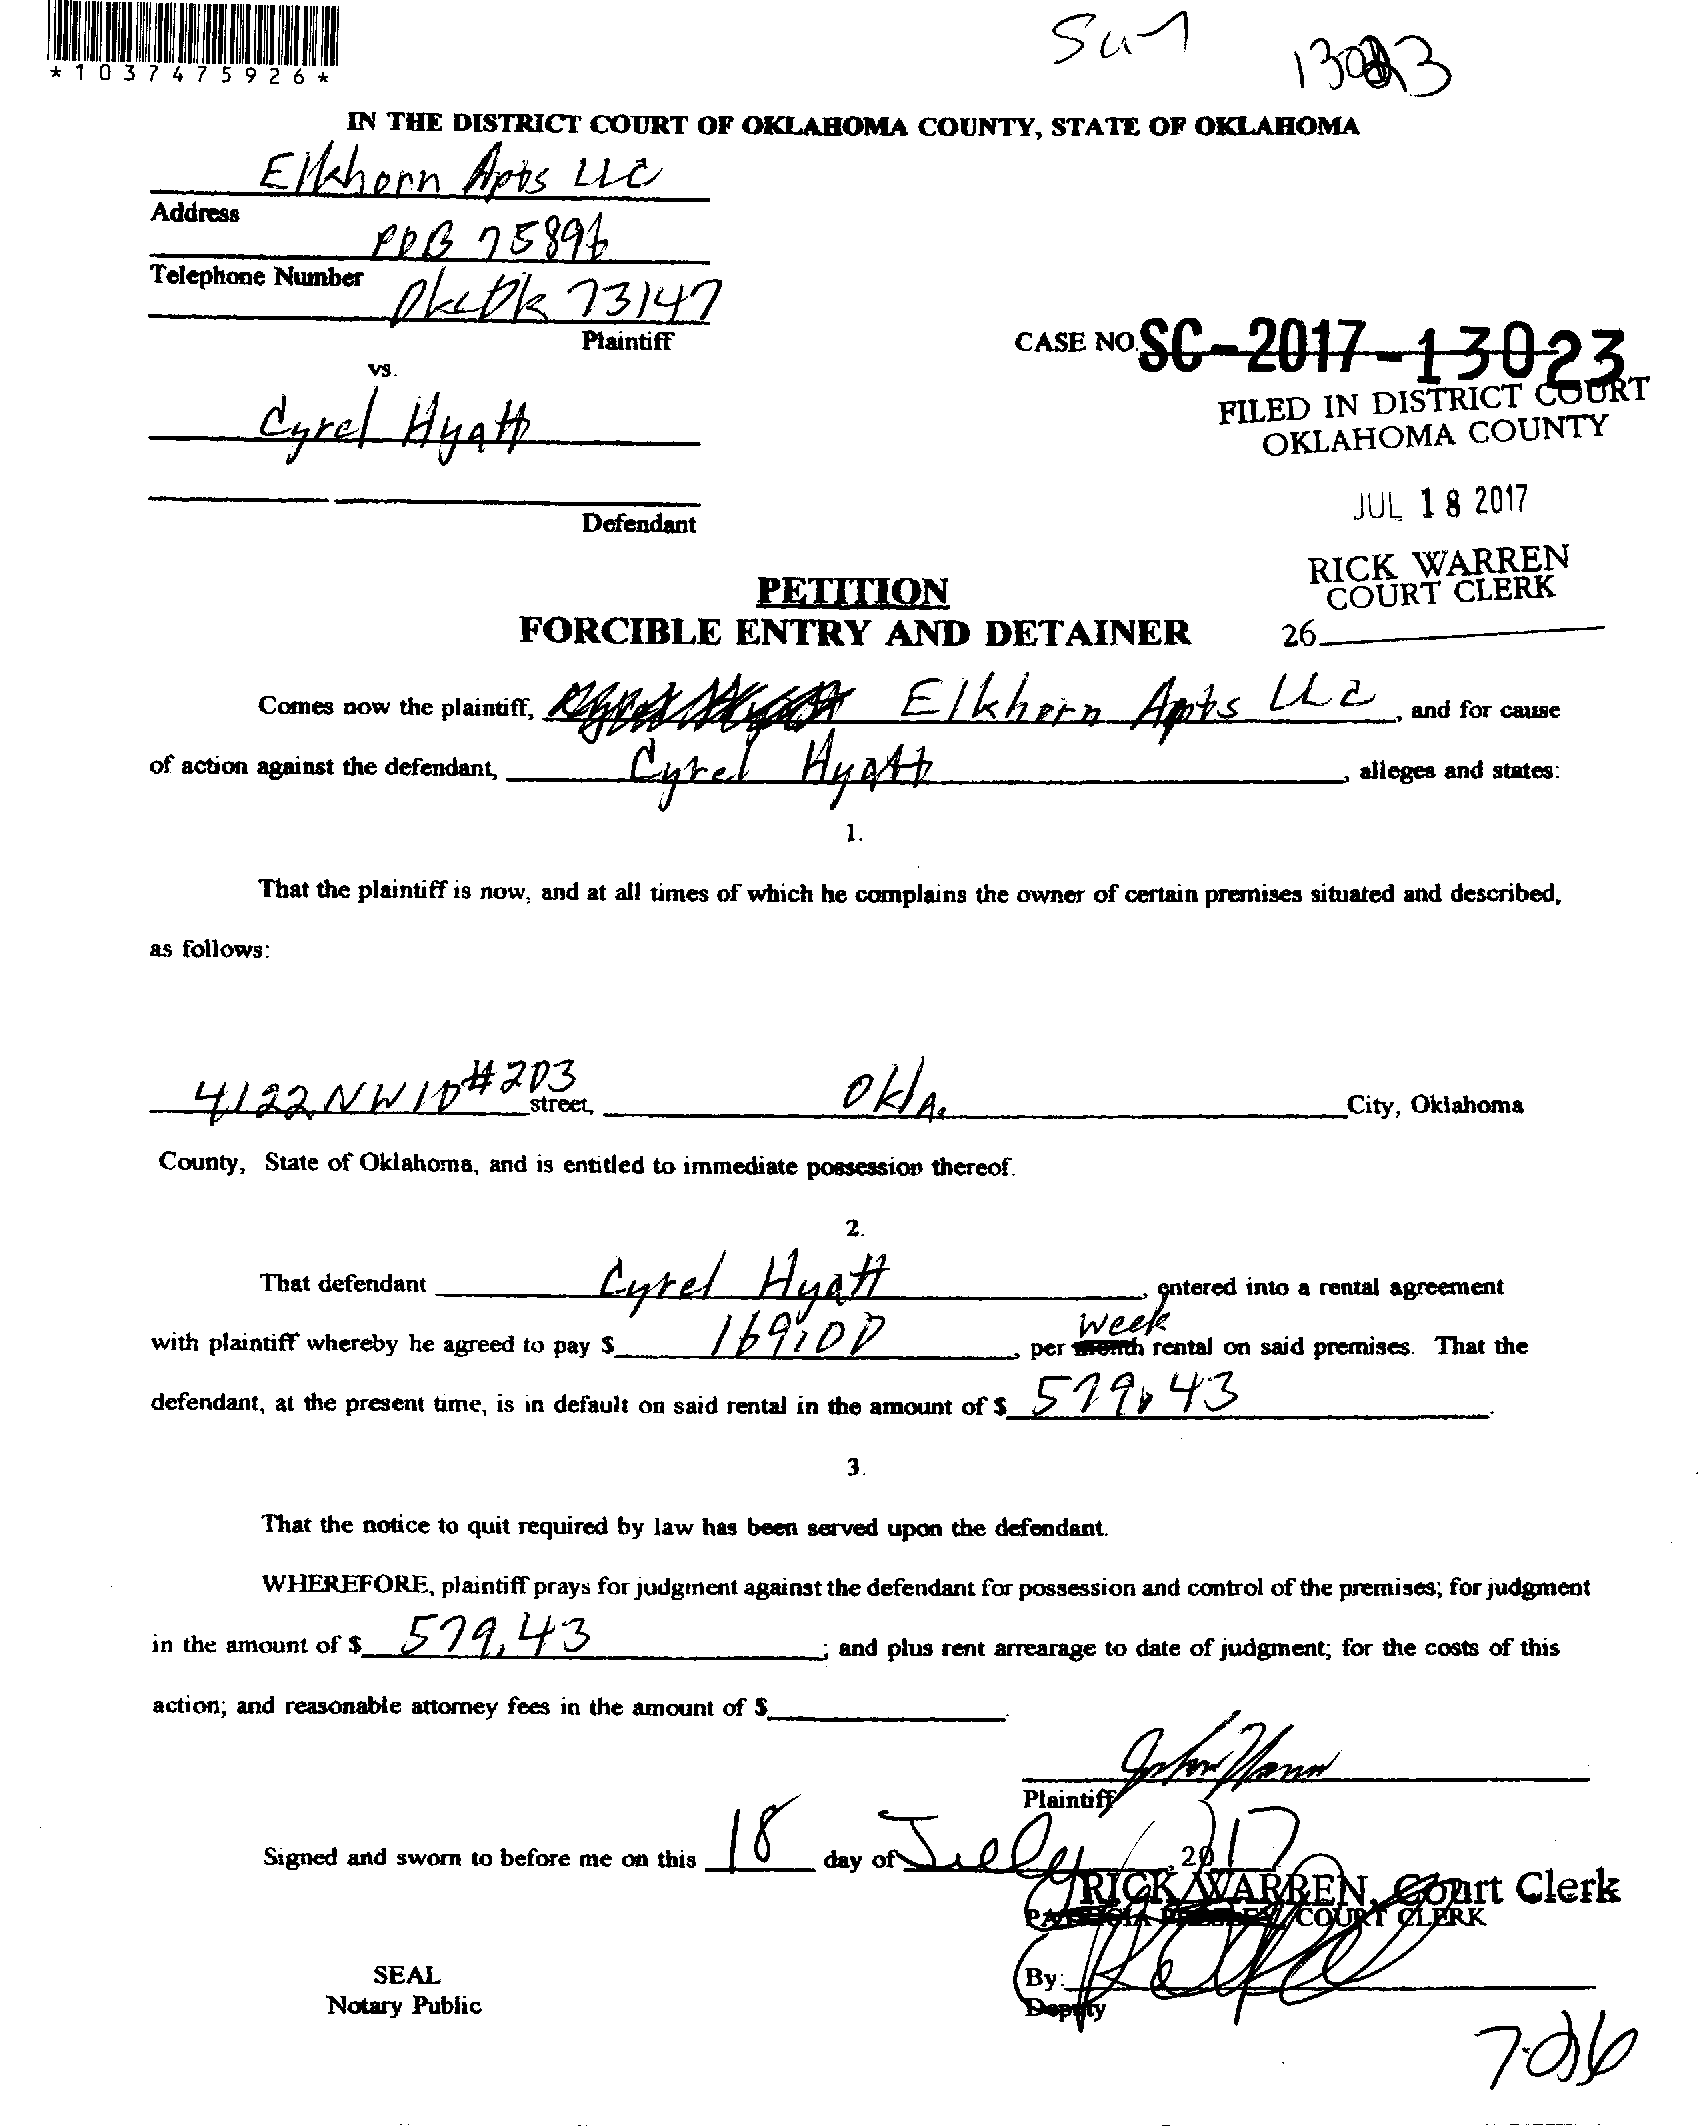 *1037475926*
IN THE DISTRICT COURT OF OKLAHOMA COUNTY, STATE OF OKLAHOMA
Elkhorn Apts LLC
Address
POB 75896
Telephone Number
Okc Ok 73147
Plaintiff
CASE NO. SC-2017-13023
vs.
FILED IN DISTRICT COURT
OKLAHOMA COUNTY
Cyrel Hyatt
JUL 18 2017
Defendant
RICK WARREN
COURT CLERK
PETITION
FORCIBLE ENTRY AND DETAINER
26
Comes now the plaintiff, Elkhorn Apts LLC, and for cause
of action against the defendant, Cyrel Hyatt, alleges and states:
1.
That the plaintiff is now, and at all times of which he complains the owner of certain premises situated and described,
as follows:
4122 NW 10 #203 street, Okla. City, Oklahoma
County, State of Oklahoma, and is entitled to immediate possession thereof.
2.
That defendant Cyrel Hyatt, entered into a rental agreement
with plaintiff whereby he agreed to pay $ 169.00, per month week rental on said premises. That the
defendant, at the present time, is in default on said rental in the amount of $ 579.43.
3.
That the notice to quit required by law has been served upon the defendant.
WHEREFORE, plaintiff prays for judgment against the defendant for possession and control of the premises; for judgment
in the amount of $ 579.43; and plus rent arrearage to date of judgment; for the costs of this
action; and reasonable attorney fees in the amount of $
Plaintiff
Signed and sworn to before me on this 18 day of July, 2017
RICK WARREN, Court Clerk
COURT CLERK
SEAL
By:
Notary Public
Deputy
7-26